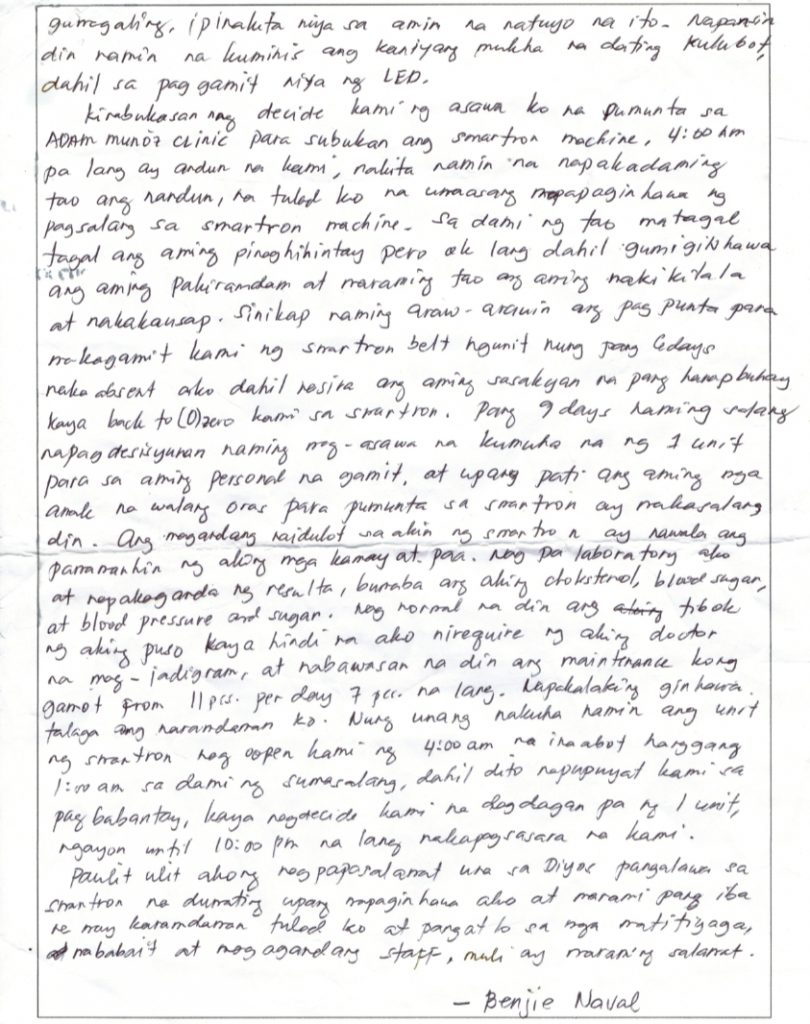 gumagaling, ipinakita niya sa amin na natuyo na ito. Napansin
din namin na kuminis ang kaniyang mukha na dating kulubot,
dahil sa pag gamit niya ng LED.
kinabukasan nag decide kami ng asawa ko na pumunta sa
ADAM munoz CLINIC para subukan ang smartron machine, 4:00 Am
pa lang ay andun na kami, nakita namin na napakadaming
tao ang nandun, na tulad ko na umaasang mapapaginhawa ng
pagsalang sa smartron machine. Sa dami ng tao matagal
tagal ang aming pinaghihintay pero ok lang dahil gumiginhawa
ang aming Pakiramdam at maraming tao ang aming nakikilala
at nakakausap. Sinikap naming araw-arawin ang pag punta para
makagamit kami ng smartron belt ngunit nung pang 6days
naka absent ako dahil nasira ang aming sasakyan na pang hanapbuhay
kaya back to (0)zero kami sa smartron. Pang 9 days naming salang
napagdesisyunan naming mag-asawa na kumuha na ng 1 unit
para sa aming personal na gamit, at upang pati ang aming mga
anak na walang oras para pumunta sa smartron ay makasalang
din. Ang magandang naidulot sa akin ng smartron ay nawala ang
pamamanhin ng aking mga kamay at paa. Nag pa laboratory ako
at napakaganda ng resulta, bumaba ang aking cholesterol, blood sugar,
at blood pressure and sugar. Nag normal na din ang aking tibok
ng aking puso kaya hindi na ako nirequire ng aking doctor
na mag-jadigram, at nabawasan na din ang maintenance kong
gamot from 11pcs. per day 7 pcs. na lang. Napakalaking ginhawa
talaga ang naramdaman ko. Nung unang nakuha namin ang unit
ng smartron nag oopen kami ng 4:00 am na inaabot hanggang
1:00 am sa dami ng sumasalang, dahil dito napupuyat kami sa
pagbabantay, kaya nagdecide kami na dagdagan pa ng 1 unit,
ngayon until 10:00 pm na lang nakapagsasara na kami.
Paulit ulit akong nagpapasalamat una sa Diyos pangalawa sa
smartron na dumating upang mapaginhawa ako at marami pang iba
na may karamdaman tulad ko at pangatlo sa mga matitiyaga,
mababait at magagandang staff, muli ay maraming salamat.
- Benjie Naval